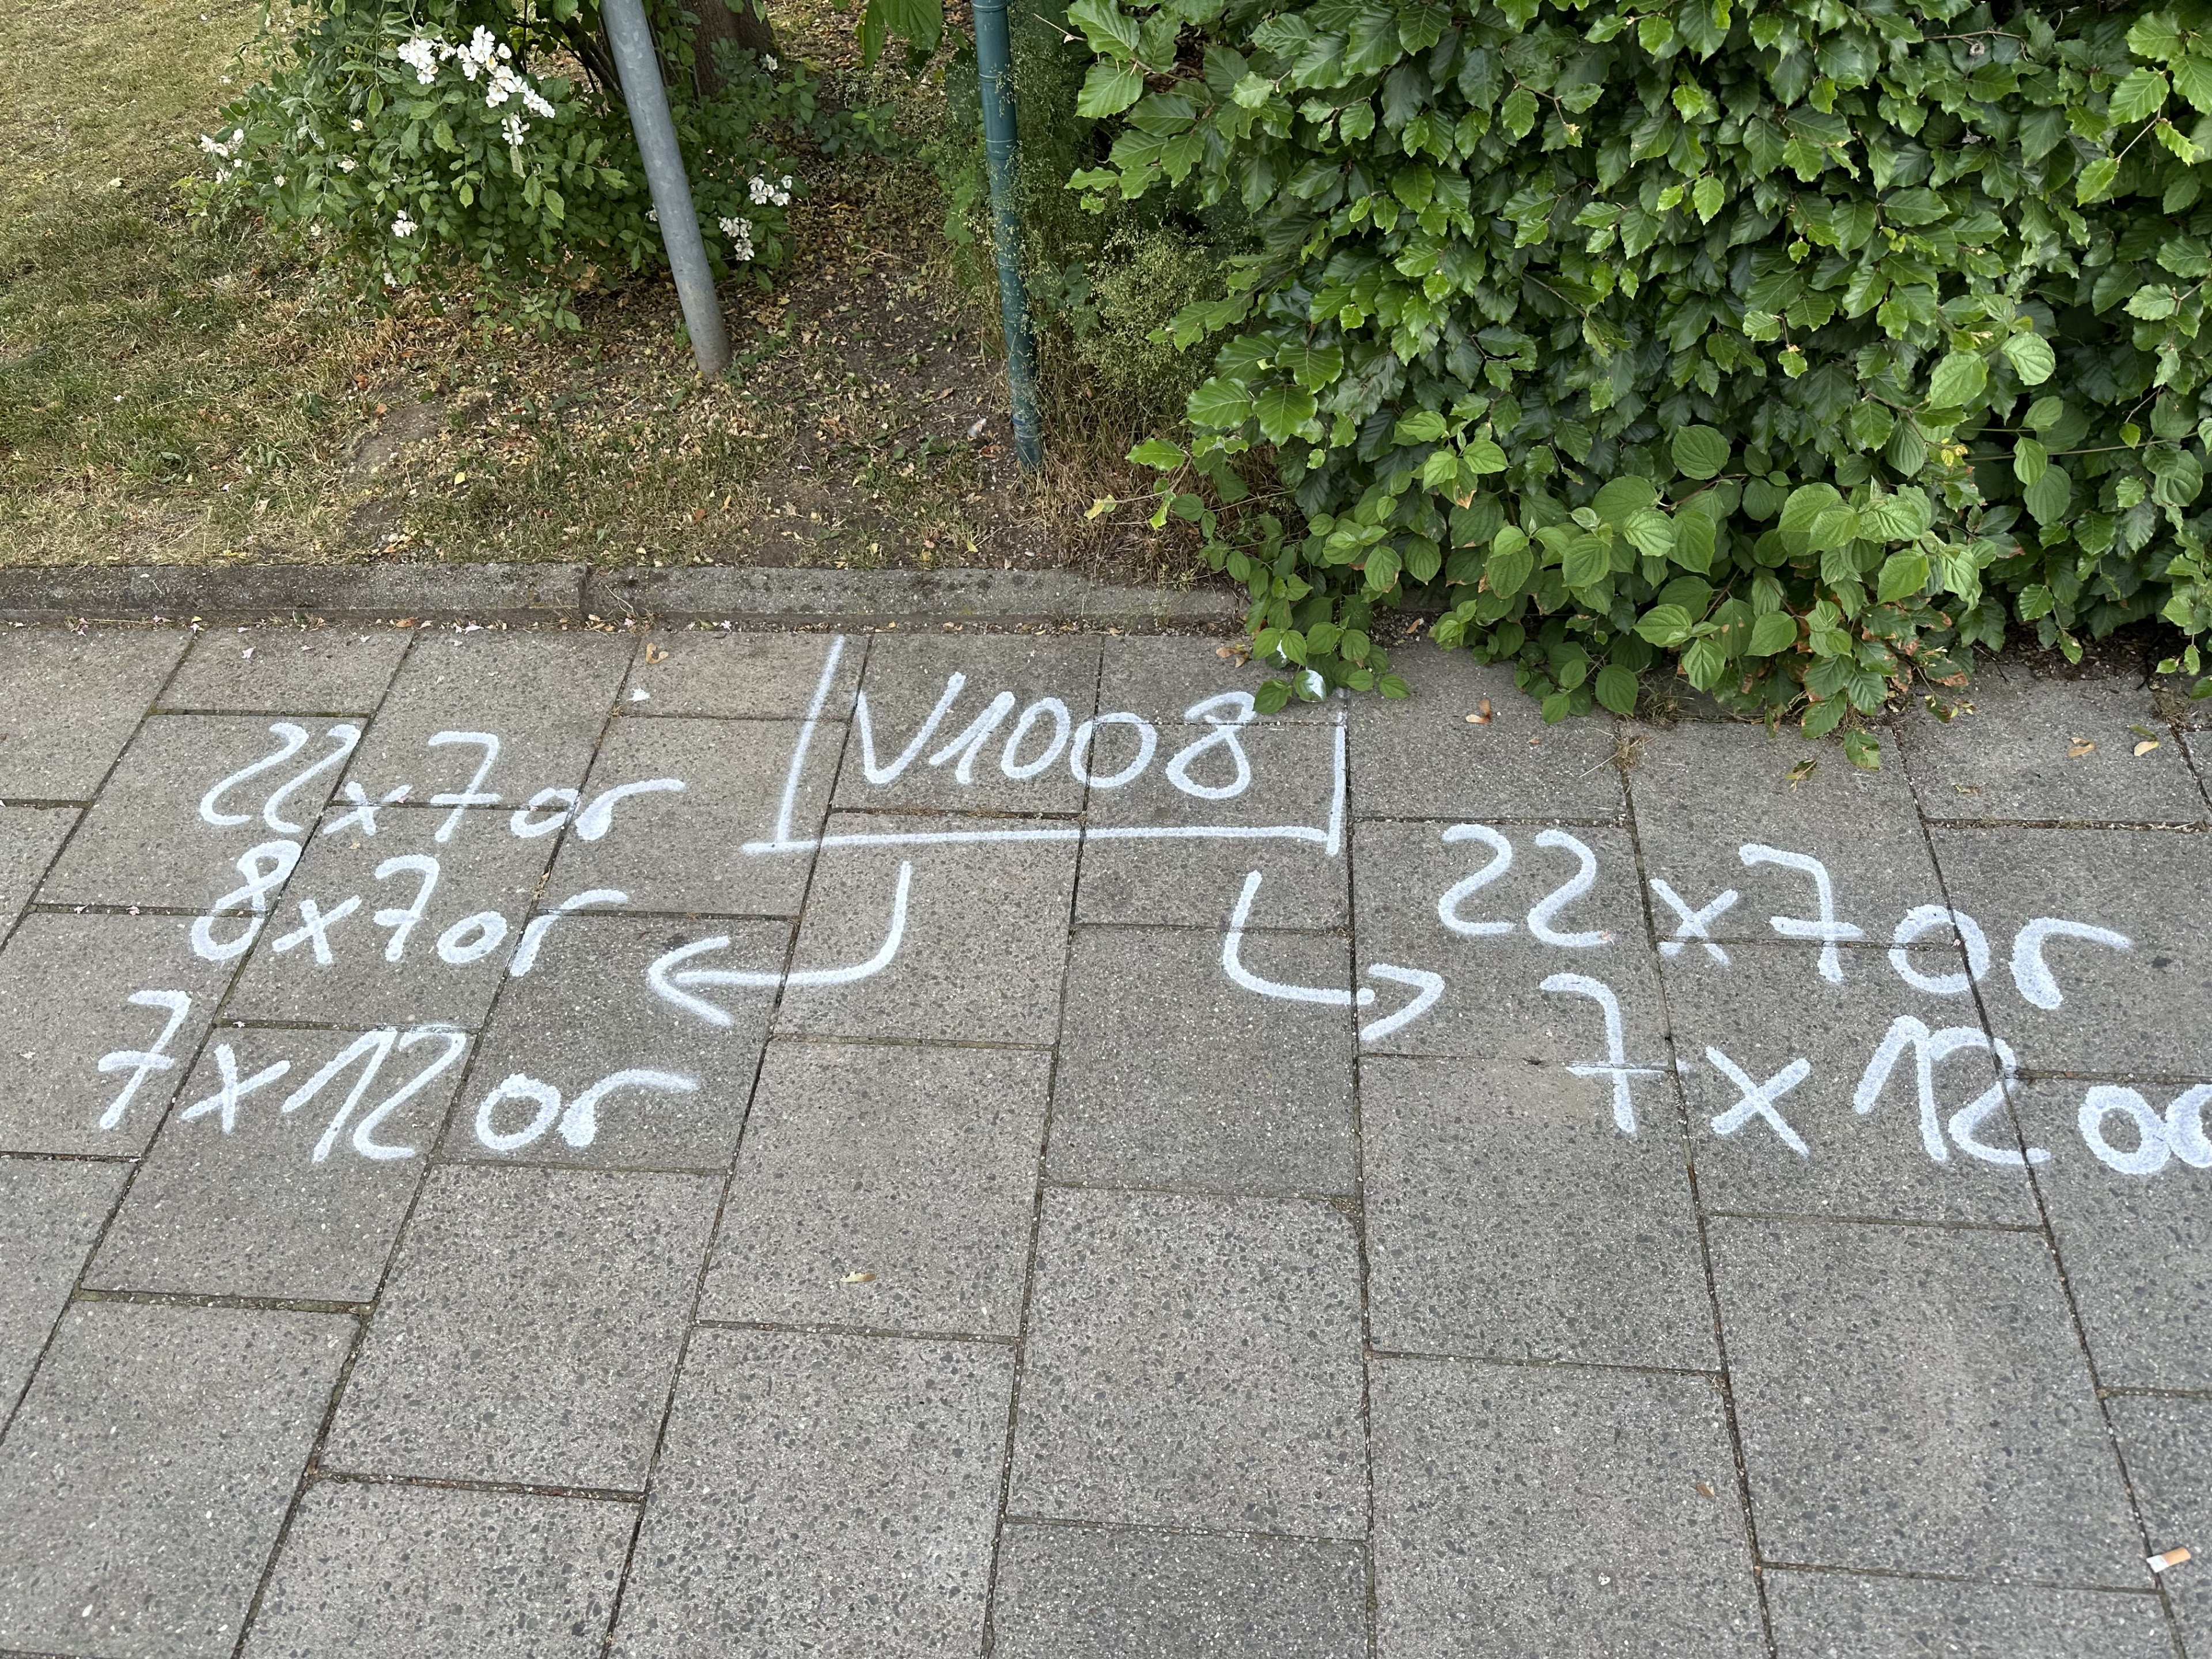 V1008
22x7or
8x7or
7x12or
22x7or
7x12or